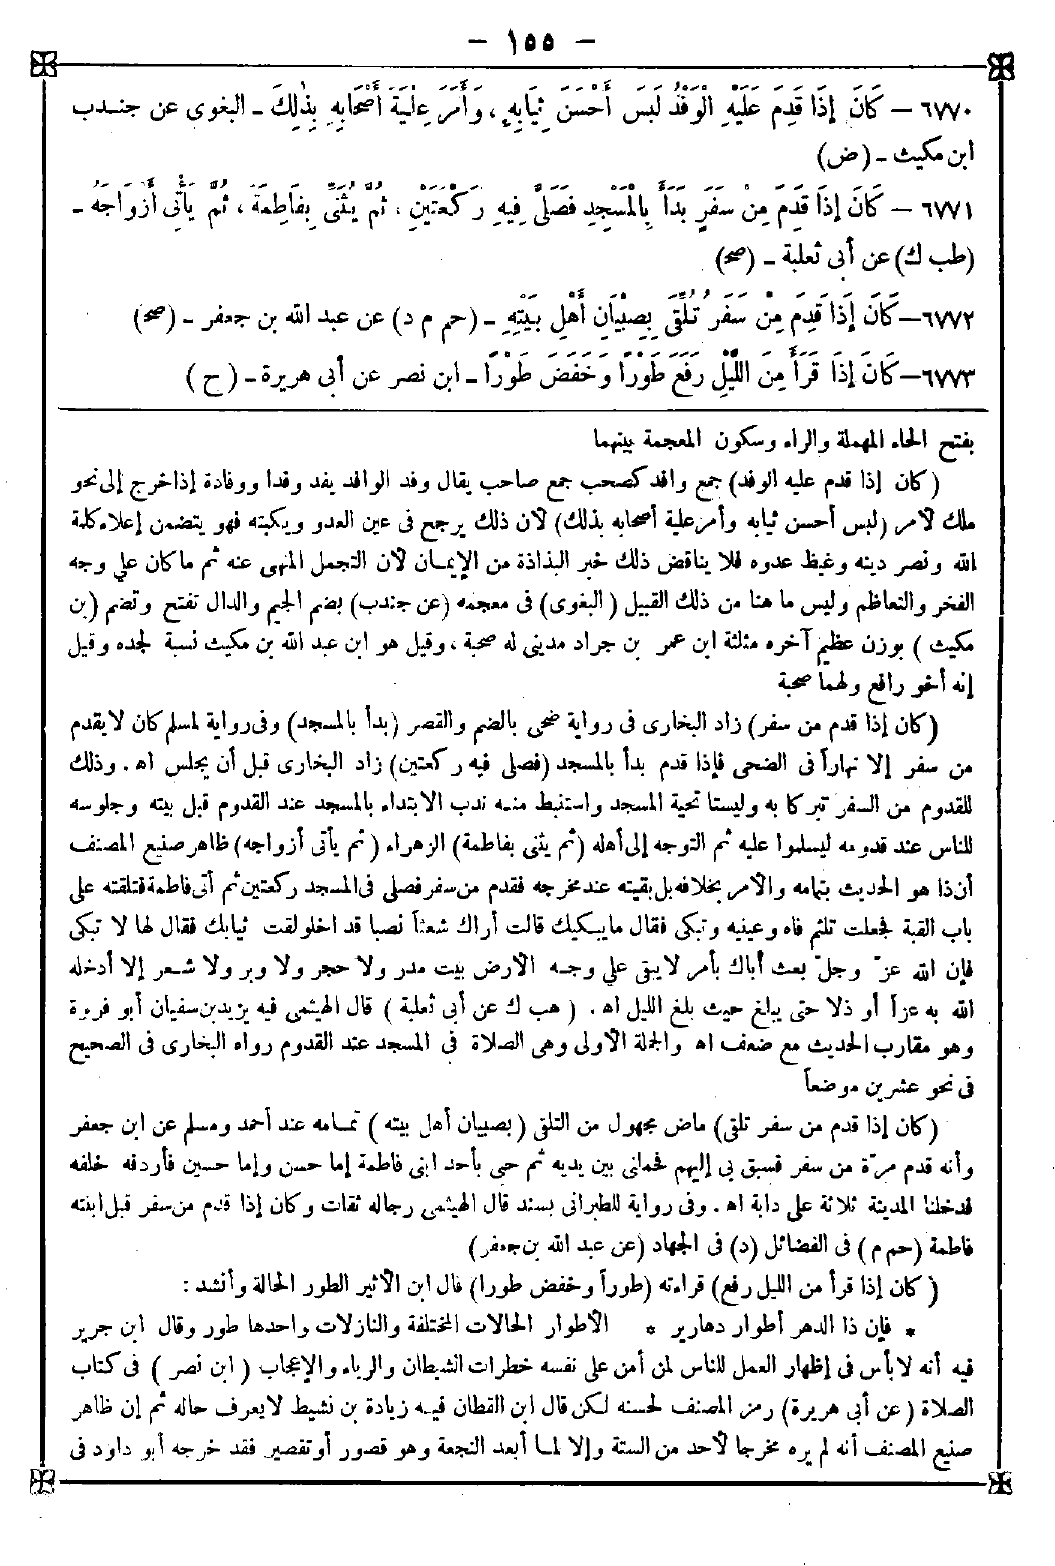 — ١٥٥ —
٦٧٧٠ — كَانَ إِذَا قَدِمَ عَلَيْهِ الْوَفْدُ لَبِسَ أَحْسَنَ ثِيَابِهِ ، وَأَمَرَ عِلْيَةَ أَصْحَابِهِ بِذٰلِكَ - البغوى عن جنـدب
ابن مكيث - (ض)
٦٧٧١ — كَانَ إِذَا قَدِمَ مِنْ سَفَرٍ بَدَأَ بِالْمَسْجِدِ فَصَلَّى فِيهِ رَكْعَتَيْنِ ، ثُمَّ يُثَنِّى بِفَاطِمَةَ ، ثُمَّ يَأْتِى أَزْوَاجَهُ -
(طب ك) عن أبى ثعلبة - (صح)
٦٧٧٢ — كَانَ إِذَا قَدِمَ مِنْ سَفَرٍ تُلُقِّىَ بِصِبْيَانِ أَهْلِ بَيْتِهِ - (حم م د) عن عبد الله بن جعفر - (صح)
٦٧٧٣ — كَانَ إِذَا قَرَأَ مِنَ اللَّيْلِ رَفَعَ طَوْرًا وَخَفَضَ طَوْرًا - ابن نصر عن أبى هريرة - (ح)
بفتح الحاء المهملة والراء وسكون المعجمة بينهما
(كان إذا قدم عليه الوفد) جمع وافد كصحب جمع صاحب يقال وفد الوافد يفد وفدا ووفادة إذا خرج إلى نحو
ملك لأمر (لبس أحسن ثيابه وأمر علية أصحابه بذلك) لأن ذلك يرجع فى عين العدو ويكبته فهو يتضمن إعلاء كلمة
الله ونصر دينه وغيظ عدوه فلا يناقض ذلك خبر البذاذة من الإيمـان لأن التجمل المنهى عنه ثم ما كان على وجه
الفخر والتعاظم وليس ما هنا من ذلك القبيل (البغوى) فى معجمه (عن جندب) بضم الجيم والدال تفتح وتضم (بن
مكيث) بوزن عظيم آخره مثلثة ابن عمر بن جراد مدينى له صحبة ، وقيل هو ابن عبد الله بن مكيث نسبة لجده وقيل
إنه أخو رافع ولهما صحبة
(كان إذا قدم من سفر) زاد البخارى فى رواية ضحى بالضم والقصر (بدأ بالمسجد) وفى رواية لمسلم كان لا يقدم
من سفر إلا نهاراً فى الضحى فإذا قدم بدأ بالمسجد (فصلى فيه ركعتين) زاد البخارى قبل أن يجلس اه . وذلك
للقدوم من السفر تبركا به وليستا تحية المسجد واستنبط منـه ندب الابتداء بالمسجد عند القدوم قبل بيته وجلوسه
للناس عند قدومه ليسلموا عليه ثم التوجه إلى أهله (ثم يثنى بفاطمة) الزهراء (ثم يأتى أزواجه) ظاهر صنيع المصنف
أن ذا هو الحديث بتمامه والأمر بخلافه بل بقيته عند مخرجه فقدم من سفر فصلى فى المسجد ركعتين ثم أتى فاطمة فتلقته على
باب القبة فجعلت تلثم فاه وعينيه وتبكى فقال ما يبكيك قالت أراك شعثاً نصبا قد اخلولقت ثيابك فقال لها لا تبكى
فإن الله عزّ وجلّ بعث أباك بأمر لا يبقى على وجـه الأرض بيت مدر ولا حجر ولا وبر ولا شـعر إلا أدخله
الله به عزاً أو ذلا حتى يبلغ حيث بلغ الليل اه . (هب ك عن أبى ثعلبة) قال الهيثمى فيه يزيد بن سفيان أبو فروة
وهو مقارب الحديث مع ضعف اه والجملة الأولى وهى الصلاة فى المسجد عند القدوم رواه البخارى فى الصحيح
فى نحو عشرين موضعاً
(كان إذا قدم من سفر تلقى) ماض مجهول من التلقى (بصبيان أهل بيته) تمـامه عند أحمد ومسلم عن ابن جعفر
وأنه قدم مرّة من سفر فسبق بى إليهم فحملنى بين يديه ثم جىء بأحد ابنى فاطمة إما حسن وإما حسين فأردفه خلفه
فدخلنا المدينة ثلاثة على دابة اه . وفى رواية للطبرانى بسند قال الهيثمى رجاله ثقات وكان إذا قدم من سفر قبل ابنته
فاطمة (حم م) فى الفضائل (د) فى الجهاد (عن عبد الله بن جعفر)
(كان إذا قرأ من الليل رفع) قراءته (طوراً وخفض طورا) قال ابن الأثير الطور الحالة وأنشد :
* فإن ذا الدهر أطوار دهارير * الأطوار الحالات المختلفة والنازلات واحدها طور وقال ابن جرير
فيه أنه لا بأس فى إظهار العمل للناس لمن أمن على نفسه خطرات الشيطان والرياء والإعجاب (ابن نصر) فى كتاب
الصلاة (عن أبى هريرة) رمز المصنف لحسنه لكن قال ابن القطان فيـه زيادة بن نشيط لا يعرف حاله ثم إن ظاهر
صنيع المصنف أنه لم يره مخرجا لأحد من الستة وإلا لما أبعد النجعة وهو قصور أو تقصير فقد خرجه أبو داود فى